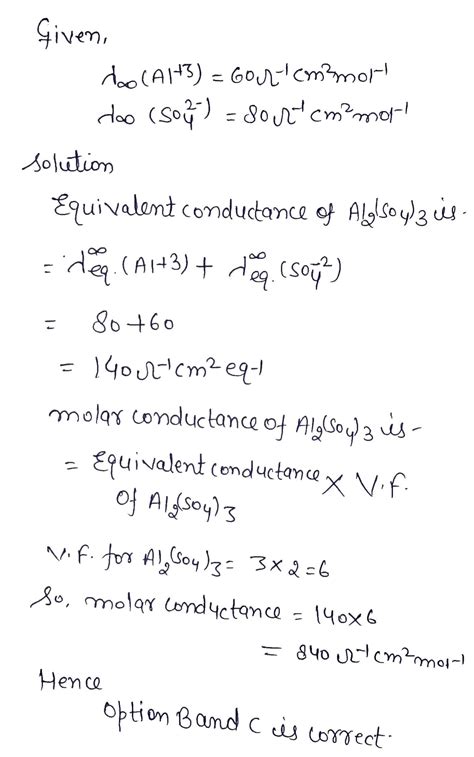 Given,
λ∞ (Al+3) = 60 Ω-1 cm2 mol-1
λ∞ (SO4 2-) = 80 Ω-1 cm2 mol-1
Solution
Equivalent conductance of Al2(SO4)3 is.
= λ∞eq. (Al+3) + λ∞eq. (SO4-2)
= 80+60
= 140 Ω-1 cm2 eq-1
molar conductance of Al2(SO4)3 is-
= Equivalent conductance × V.f.
of Al2(SO4)3
V.f. for Al2(SO4)3 = 3×2=6
So, molar conductance = 140×6
= 840 Ω-1 cm2 mol-1
Hence
Option B and C is correct.